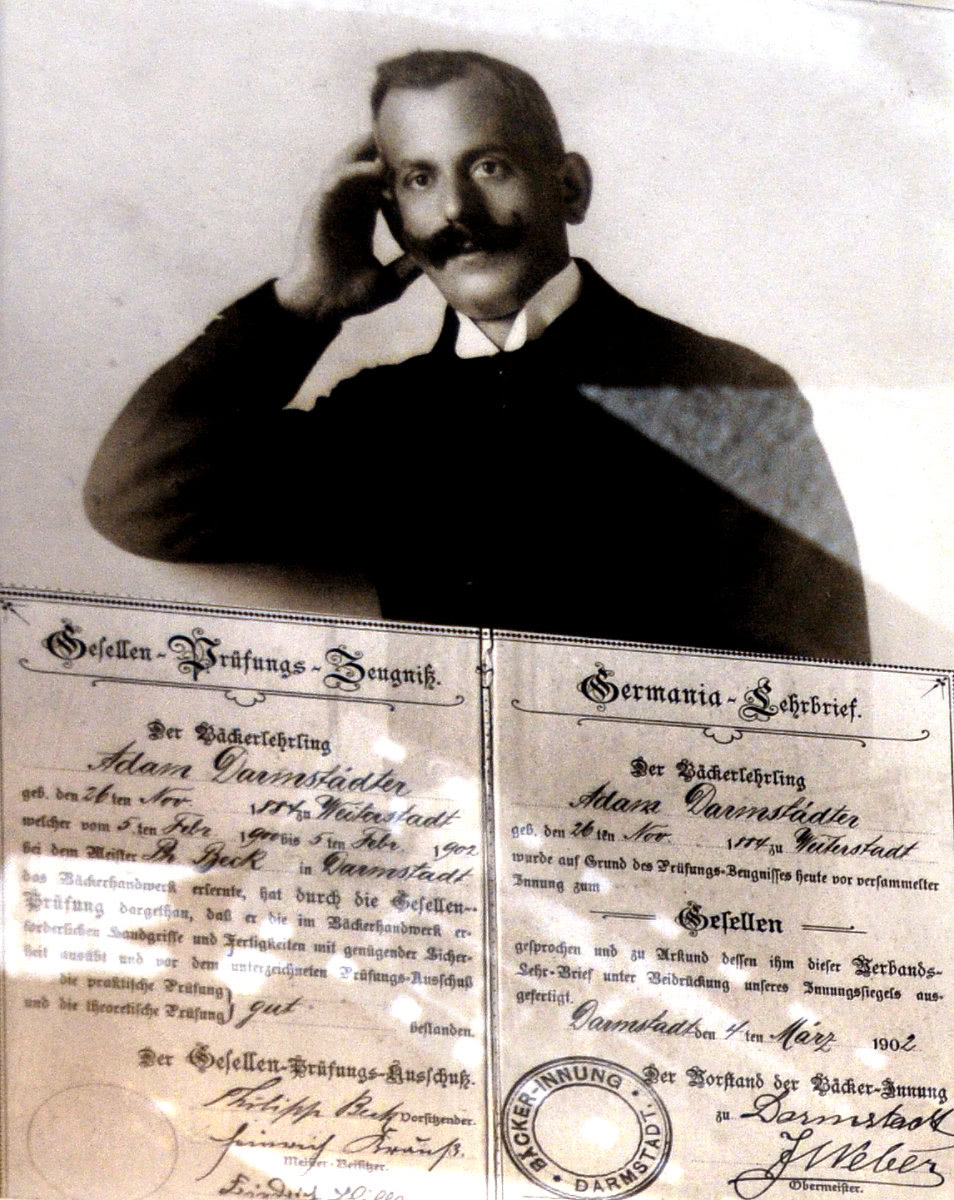 Gesellen-Prüfungs-Zeugniß.
Der Bäckerlehrling
Adam Darmstädter
geb. den 26 ten Nov. 1884 zu Weiterstadt
welcher vom 5 ten Febr. 1900 bis 5 ten Febr. 1902
bei dem Meister Ph Beck in Darmstadt
das Bäckerhandwerk erlernte, hat durch die Gesellen-
Prüfung dargethan, daß er die im Bäckerhandwerk er-
forderlichen Handgriffe und Fertigkeiten mit genügender Sicher-
heit ausübt und vor dem unterzeichneten Prüfungs-Ausschuß
die praktische Prüfung
und die theoretische Prüfung } gut
bestanden.
Der Gesellen-Prüfungs-Ausschuß.
Philipp Beck Vorsitzender.
Heinrich Krauß.
Meister-Beisitzer.
Germania-Lehrbrief.
Der Bäckerlehrling
Adam Darmstädter
geb. den 26 ten Nov. 1884 zu Weiterstadt
wurde auf Grund des Prüfungs-Zeugnisses heute vor versammelter
Innung zum
Gesellen
gesprochen und zu Urkund dessen ihm dieser Verbands-
Lehr-Brief unter Beidrückung unseres Innungssiegels aus-
gefertigt.
Darmstadt den 4 ten März 1902
Der Vorstand der Bäcker-Innung
zu Darmstadt
J Weber
Obermeister.
BÄCKER-INNUNG
DARMSTADT